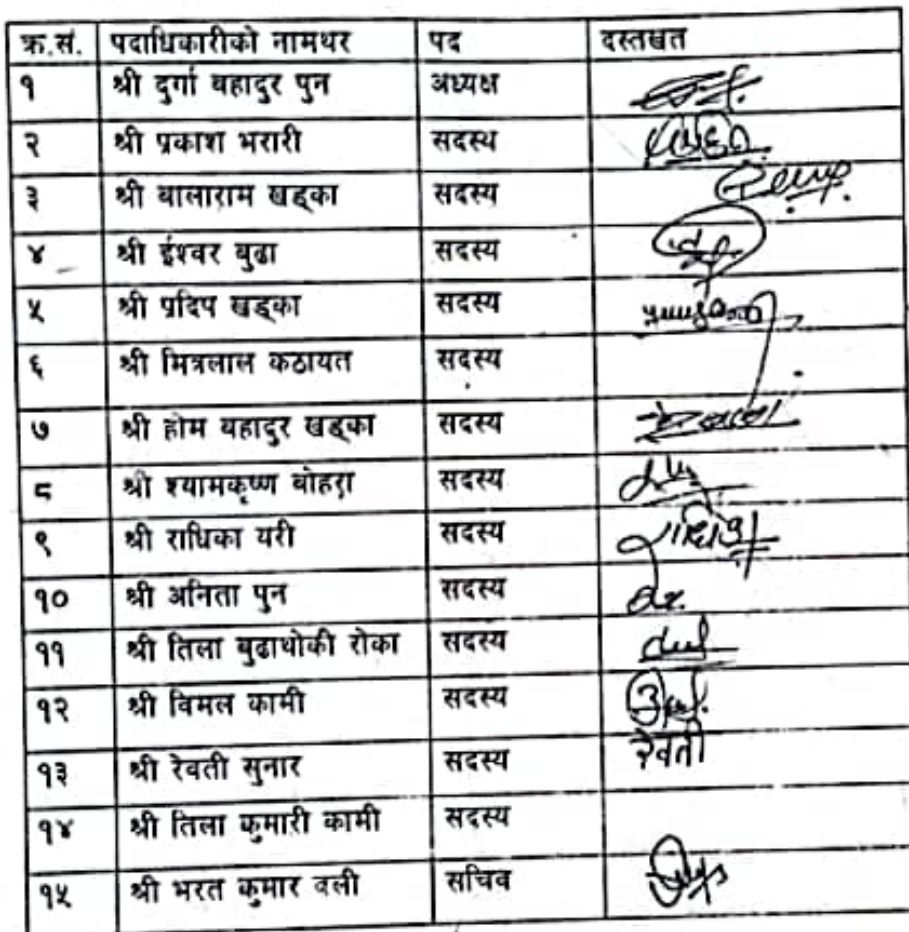 क्र.सं. पदाधिकारीको नामथर पद दस्तखत
१ श्री दुर्गा बहादुर पुन अध्यक्ष
२ श्री प्रकाश भरारी सदस्य
३ श्री बालाराम खड्का सदस्य
४ श्री ईश्वर बुढा सदस्य
५ श्री प्रदिप खड्का सदस्य
६ श्री मित्रलाल कठायत सदस्य
७ श्री होम बहादुर खड्का सदस्य
८ श्री श्यामकृष्ण बोहरा सदस्य
९ श्री राधिका यरी सदस्य
१० श्री अनिता पुन सदस्य
११ श्री तिला बुढाथोकी रोका सदस्य
१२ श्री विमल कामी सदस्य
१३ श्री रेवती सुनार सदस्य रेवती
१४ श्री तिला कुमारी कामी सदस्य
१५ श्री भरत कुमार वली सचिव